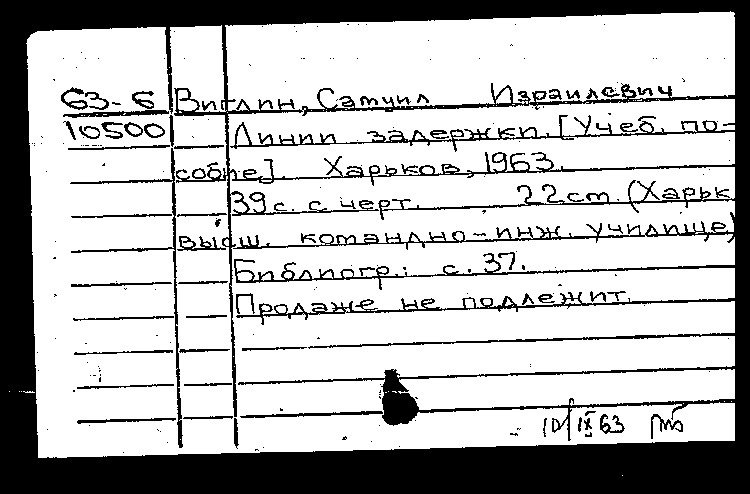 63-6 Виглин, Самуил Израилевич
10500 Линии задержки. [Учеб. по-
собие]. Харьков, 1963.
39 с. с черт. 22 см. (Харьк.
высш. командно-инж. училище)
Библиогр.: с. 37.
Продаже не подлежит.
10/IX 63